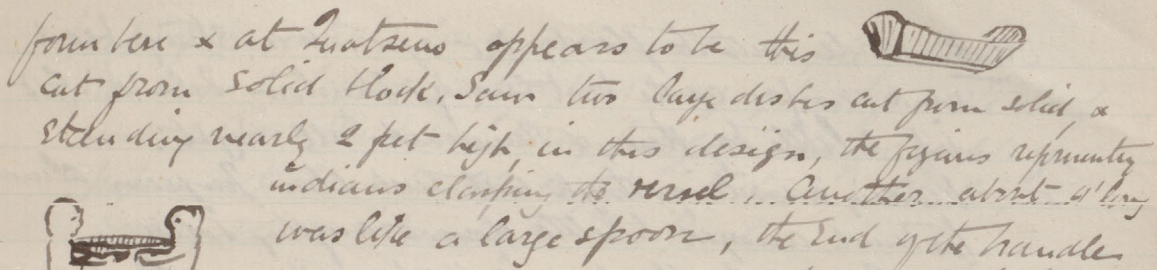 form here & at Quatseno appears to be this
cut from solid block. Saw two large dishes cut from solid, &
standing nearly 2 feet high, in this design, the figures representing
indians clasping the vessel. Another about 4' long
was like a large spoon, the End of the handle